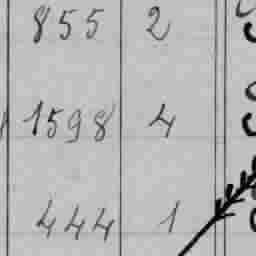 855 2
1598 4
444 1